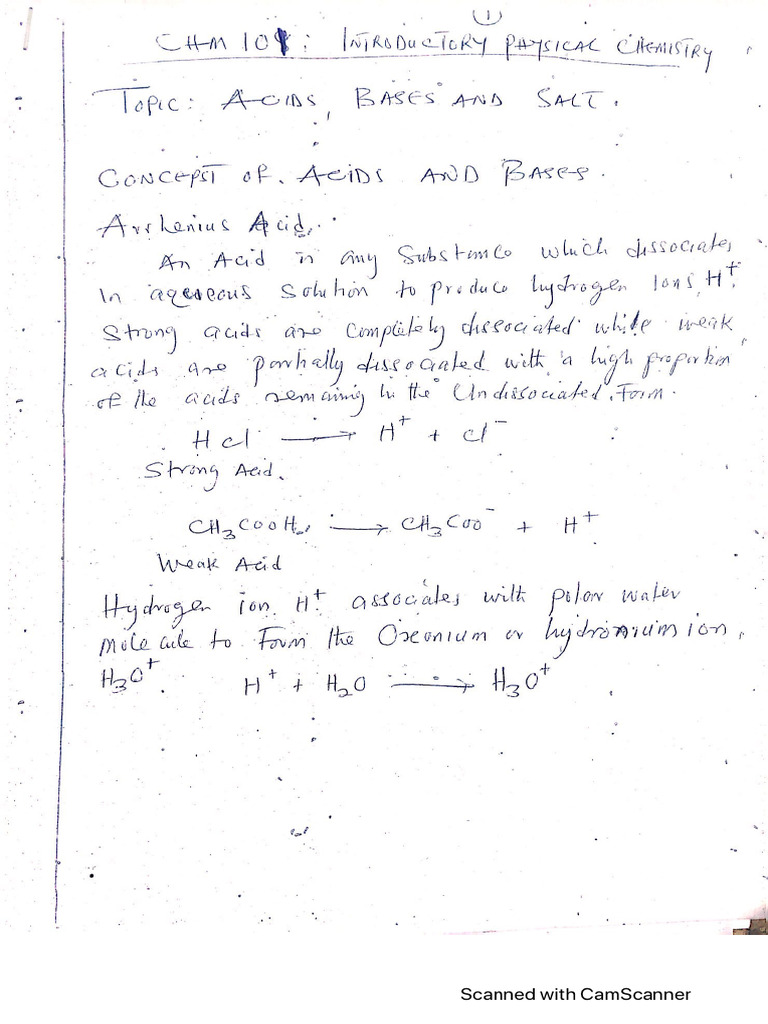 (1)
CHM 101: INTRODUCTORY PHYSICAL CHEMISTRY
TOPIC: ACIDS, BASES AND SALT.
CONCEPT OF ACIDS AND BASES.
Arrhenius Acid.
An Acid is any Substance which dissociates
In aqueous solution to produce hydrogen Ions, H⁺.
Strong acids are completely dissociated while weak
acids are partially dissociated with a high proportion
of the acids remaining in the Undissociated Form.
HCl → H⁺ + Cl⁻
Strong Acid.
CH₃COOH → CH₃COO⁻ + H⁺
Weak Acid
Hydrogen ion H⁺ associates with polar water
molecule to Form the Oxonium or hydronium ion,
H₃O⁺. H⁺ + H₂O → H₃O⁺
Scanned with CamScanner